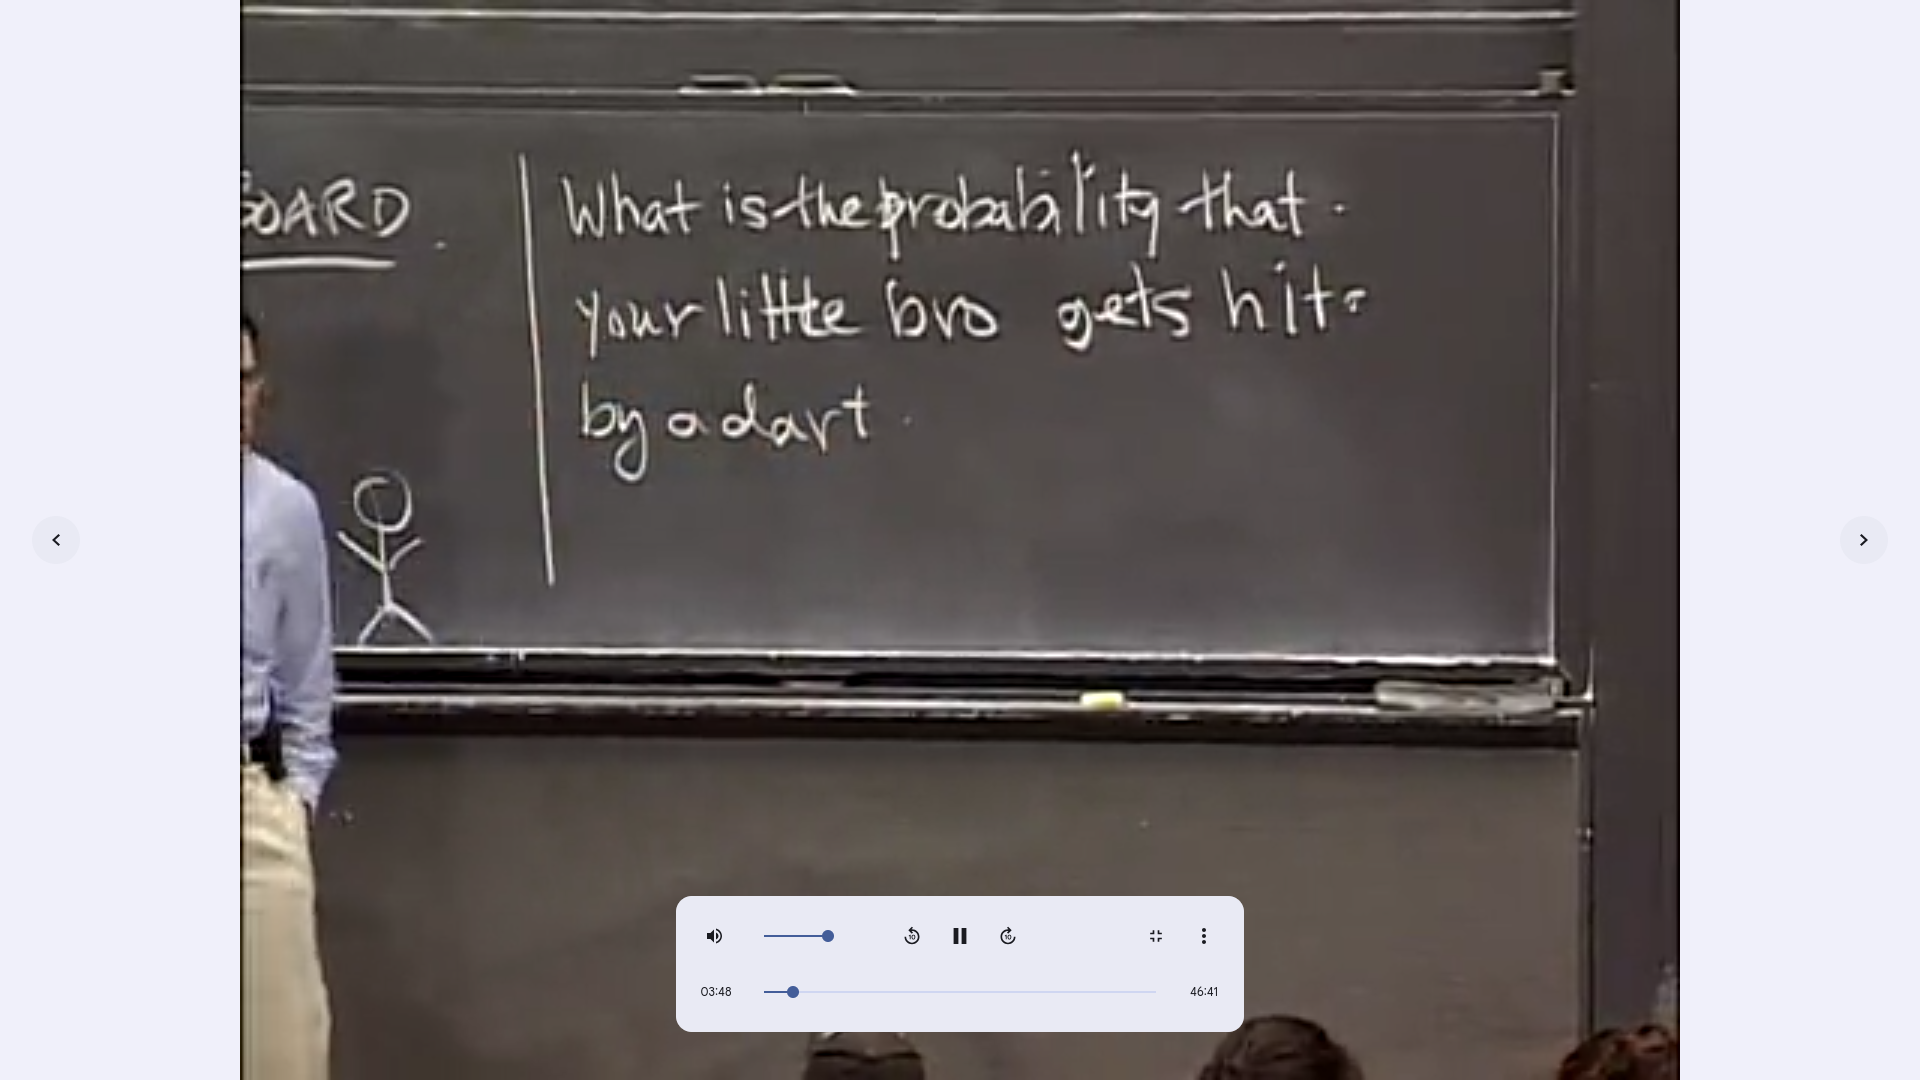 OARD
What is the probability that
your little bro gets hit
by a dart
10
10
03:48
46:41